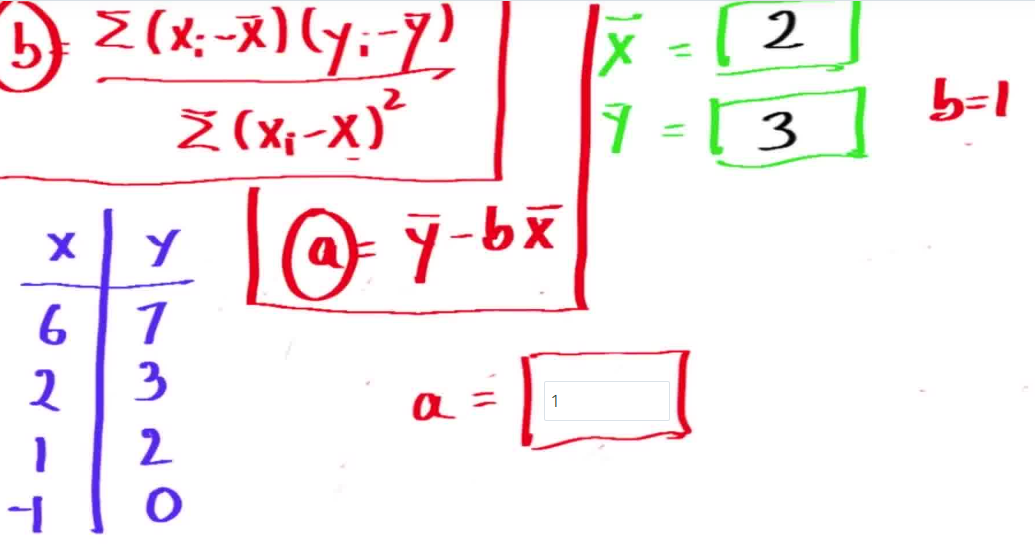 b = Σ(xᵢ-x̄)(yᵢ-ȳ)
Σ(xᵢ-x)²
x̄ = 2
ȳ = 3
b=1
a = ȳ-bx̄
x y
6 7
2 3
1 2
-1 0
a = 1